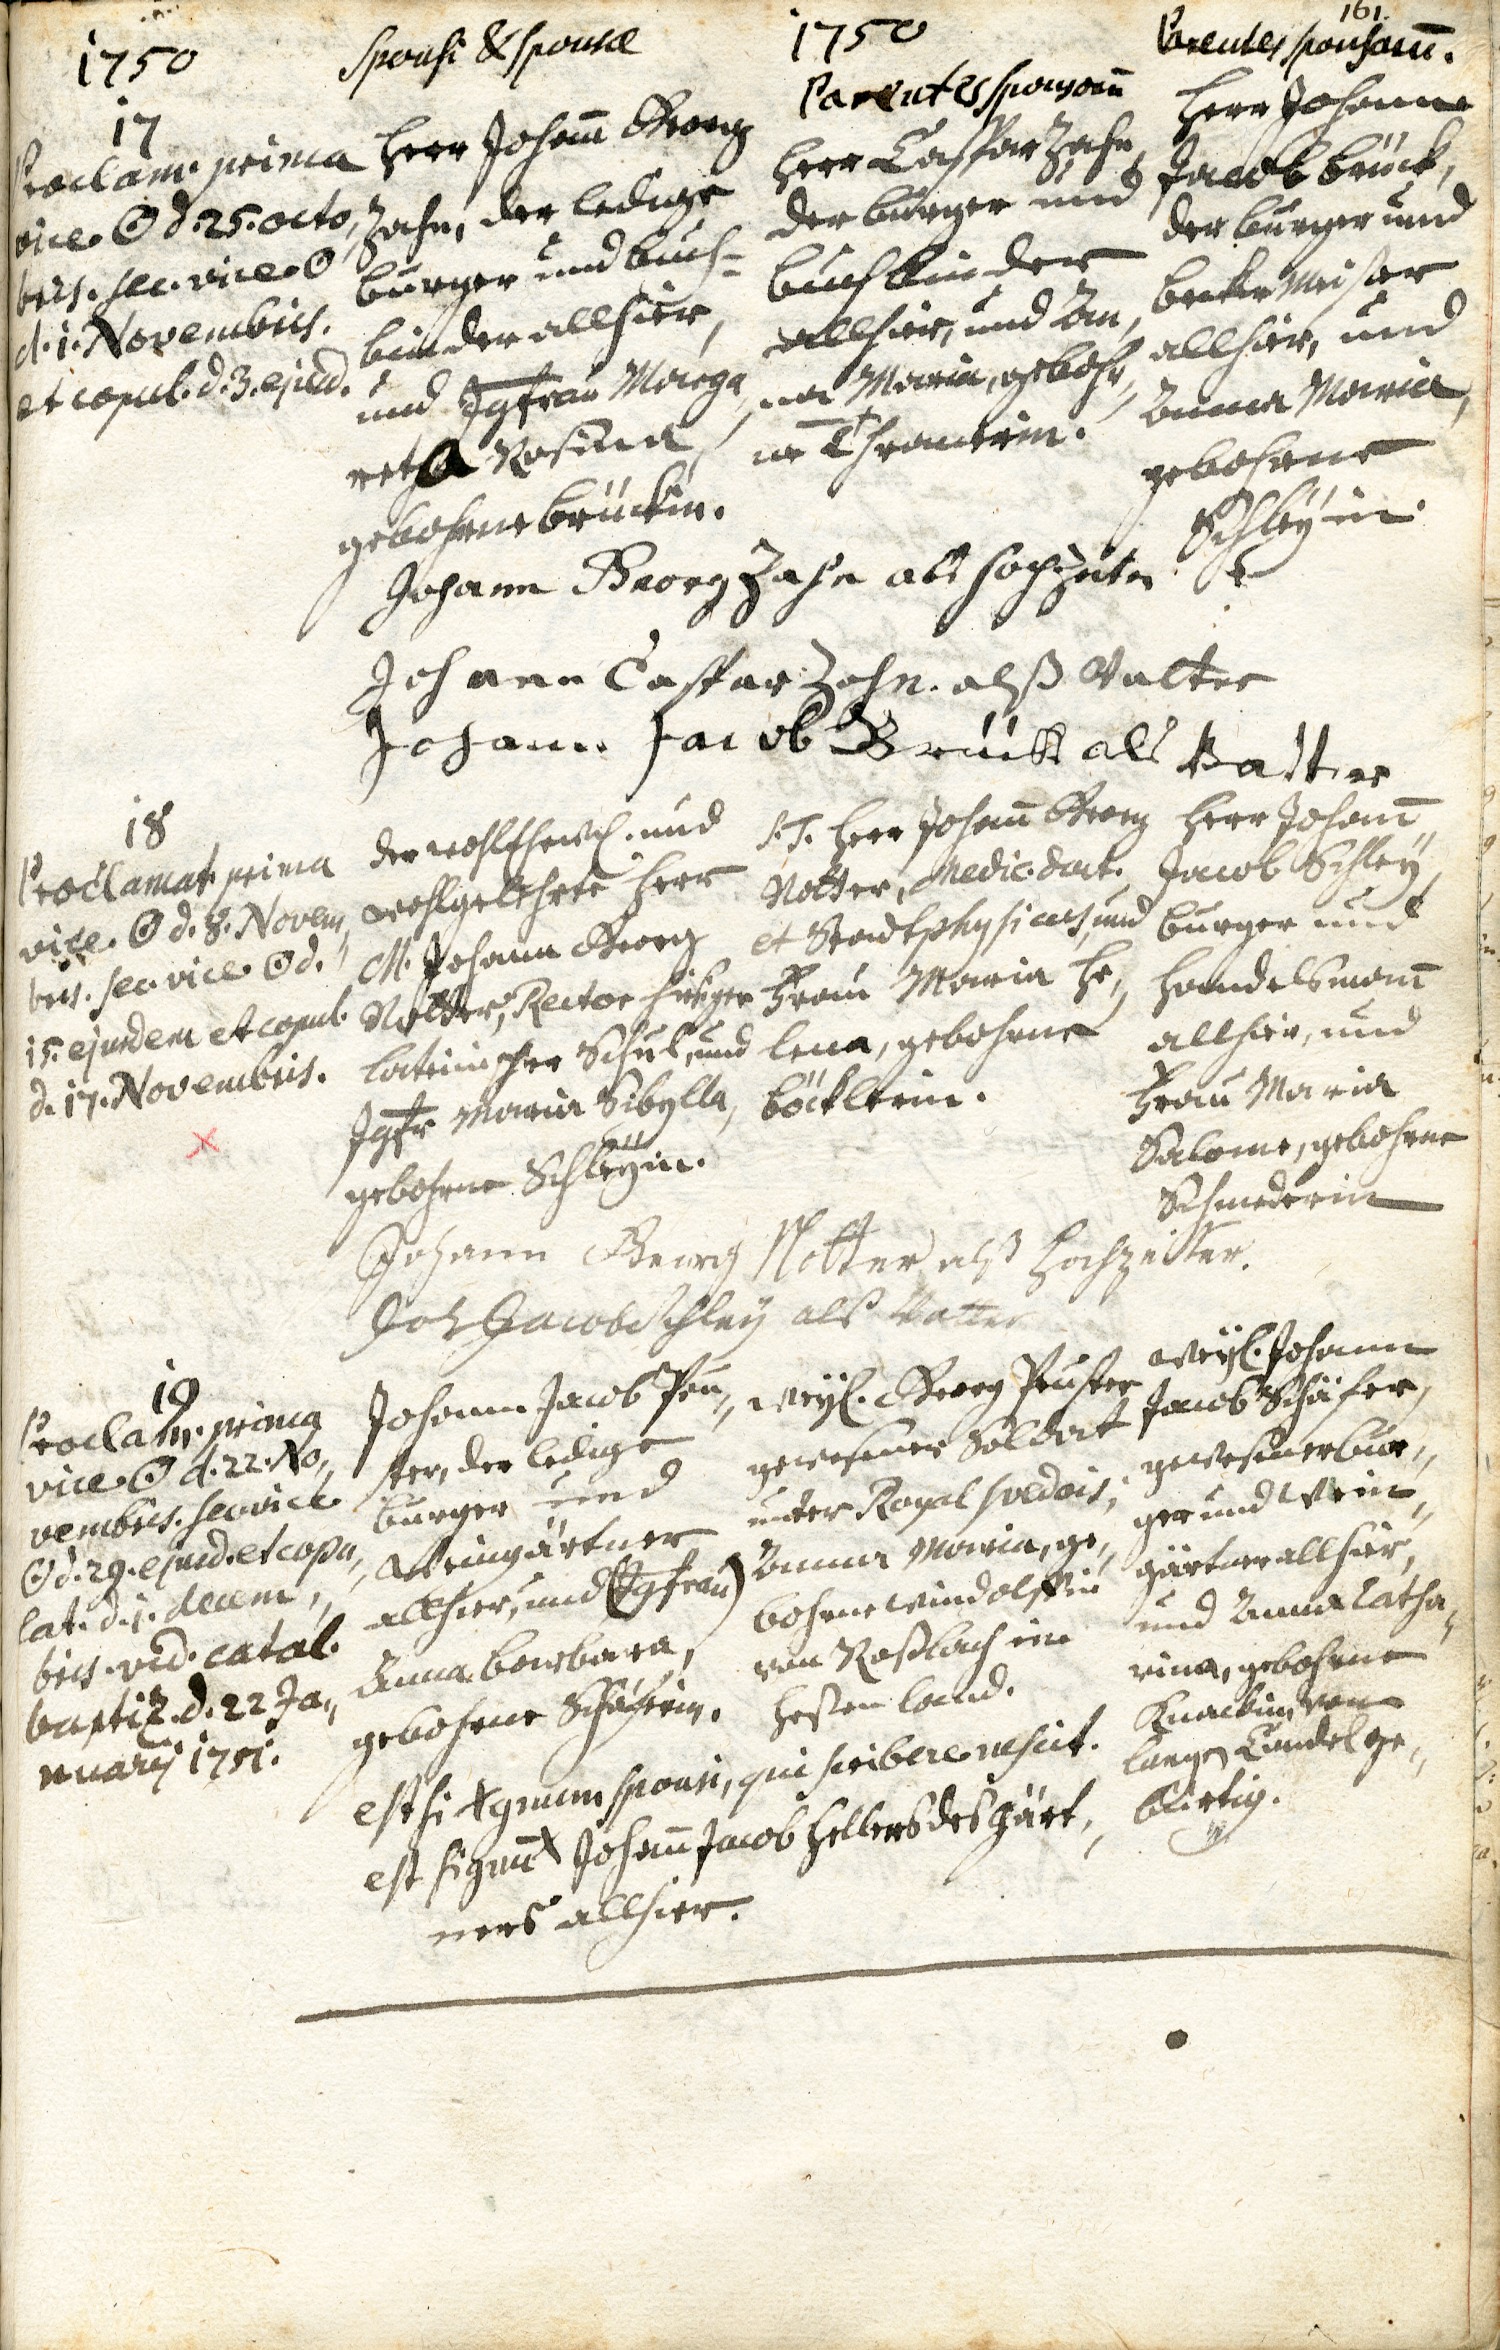 161.
1750
Sponsi & Sponsae
1750
Parentes sponsorũ
Parentes sponsarũ.
17
Proclam. prima
vice ☉ d. 25. octo,,
bris. sec. vice ☉
d. 1. Novembris.
et copul. d. 3. ejusd.
Herr Johañ Georg
Zahn, der ledige
burger und buch=
binder allhier,
und Jgfrau Marga,,
retha Rosina,
gebohrne brückin.
Herr Caspar Zahn,
der burger und
buchbinder
allhier, und An,,
na Maria, gebohr,,
ne
Herr Johann
Jacob brück,
der burger und
becker Meister
allhier, und
Anna Maria,
gebohrne
Schleÿin.
Johann Georg Zahn als hochzeiter
Johann Caspar Zahn. alß Vatter
Johann Jacob Brück als Vatter
18
Proclamat. prima
vice ☉ d. 8. Novem,,
bris. sec. vice ☉ d.
15. ejusdem et copul.
d. 17. Novembris.
der wohlEhrw. und
wohlgelehrte Herr
M. Johann Georg
Notter, Rector hießiger
lateinischer Schul, und
Jgfr Maria Sibylla,
gebohrne Schleÿin.
S.T. Herr Johañ Georg
Notter, Medic. doct.
et Stadtphysicus, und
Frau Maria He,,
lena, gebohrne
böcklerin.
Herr Johañ
Jacob Schleÿ,
burger und
handelsmañ
allhier, und
Frau Maria
Salome, gebohrne
Schmederin
Johann Georg Notter alß Hochzeiter.
Joh Jacob Schleÿ alß Vatter
19
Proclam. prima
vice ☉ d. 22. No,,
vembris. sec. vice
☉ d. 29. ejusd. et copu,,
lat. d. 1. decem,,
bris. vid. catal.
baptiz. d. 22 Ja,,
nuarÿ 1751.
Johann Jacob Peu,,
ster, der ledige
burger und
Weingärtner
allhier, und (Jgfrau)
Anna barbara,
gebohrne Schäferin.
weÿl. Georg Peuster
gewesener Soldat
unter Royal svedois,
Anna Maria, ge,,
bohrne Windolffin
von Roßbach im
Heßenland.
weÿl. Johann
Jacob Schäfer,
gewesener bur,,
ger und Wein,,
gärtner allhier,
und Anna Catha,,
rina, gebohrne
Knackin, von
langen Candel ge,,
bürtig.
est si + gnum sponsi, qui scribere nescit.
est signũ + Johañ Jacob Hellers des Gärt,,
ners allhier.